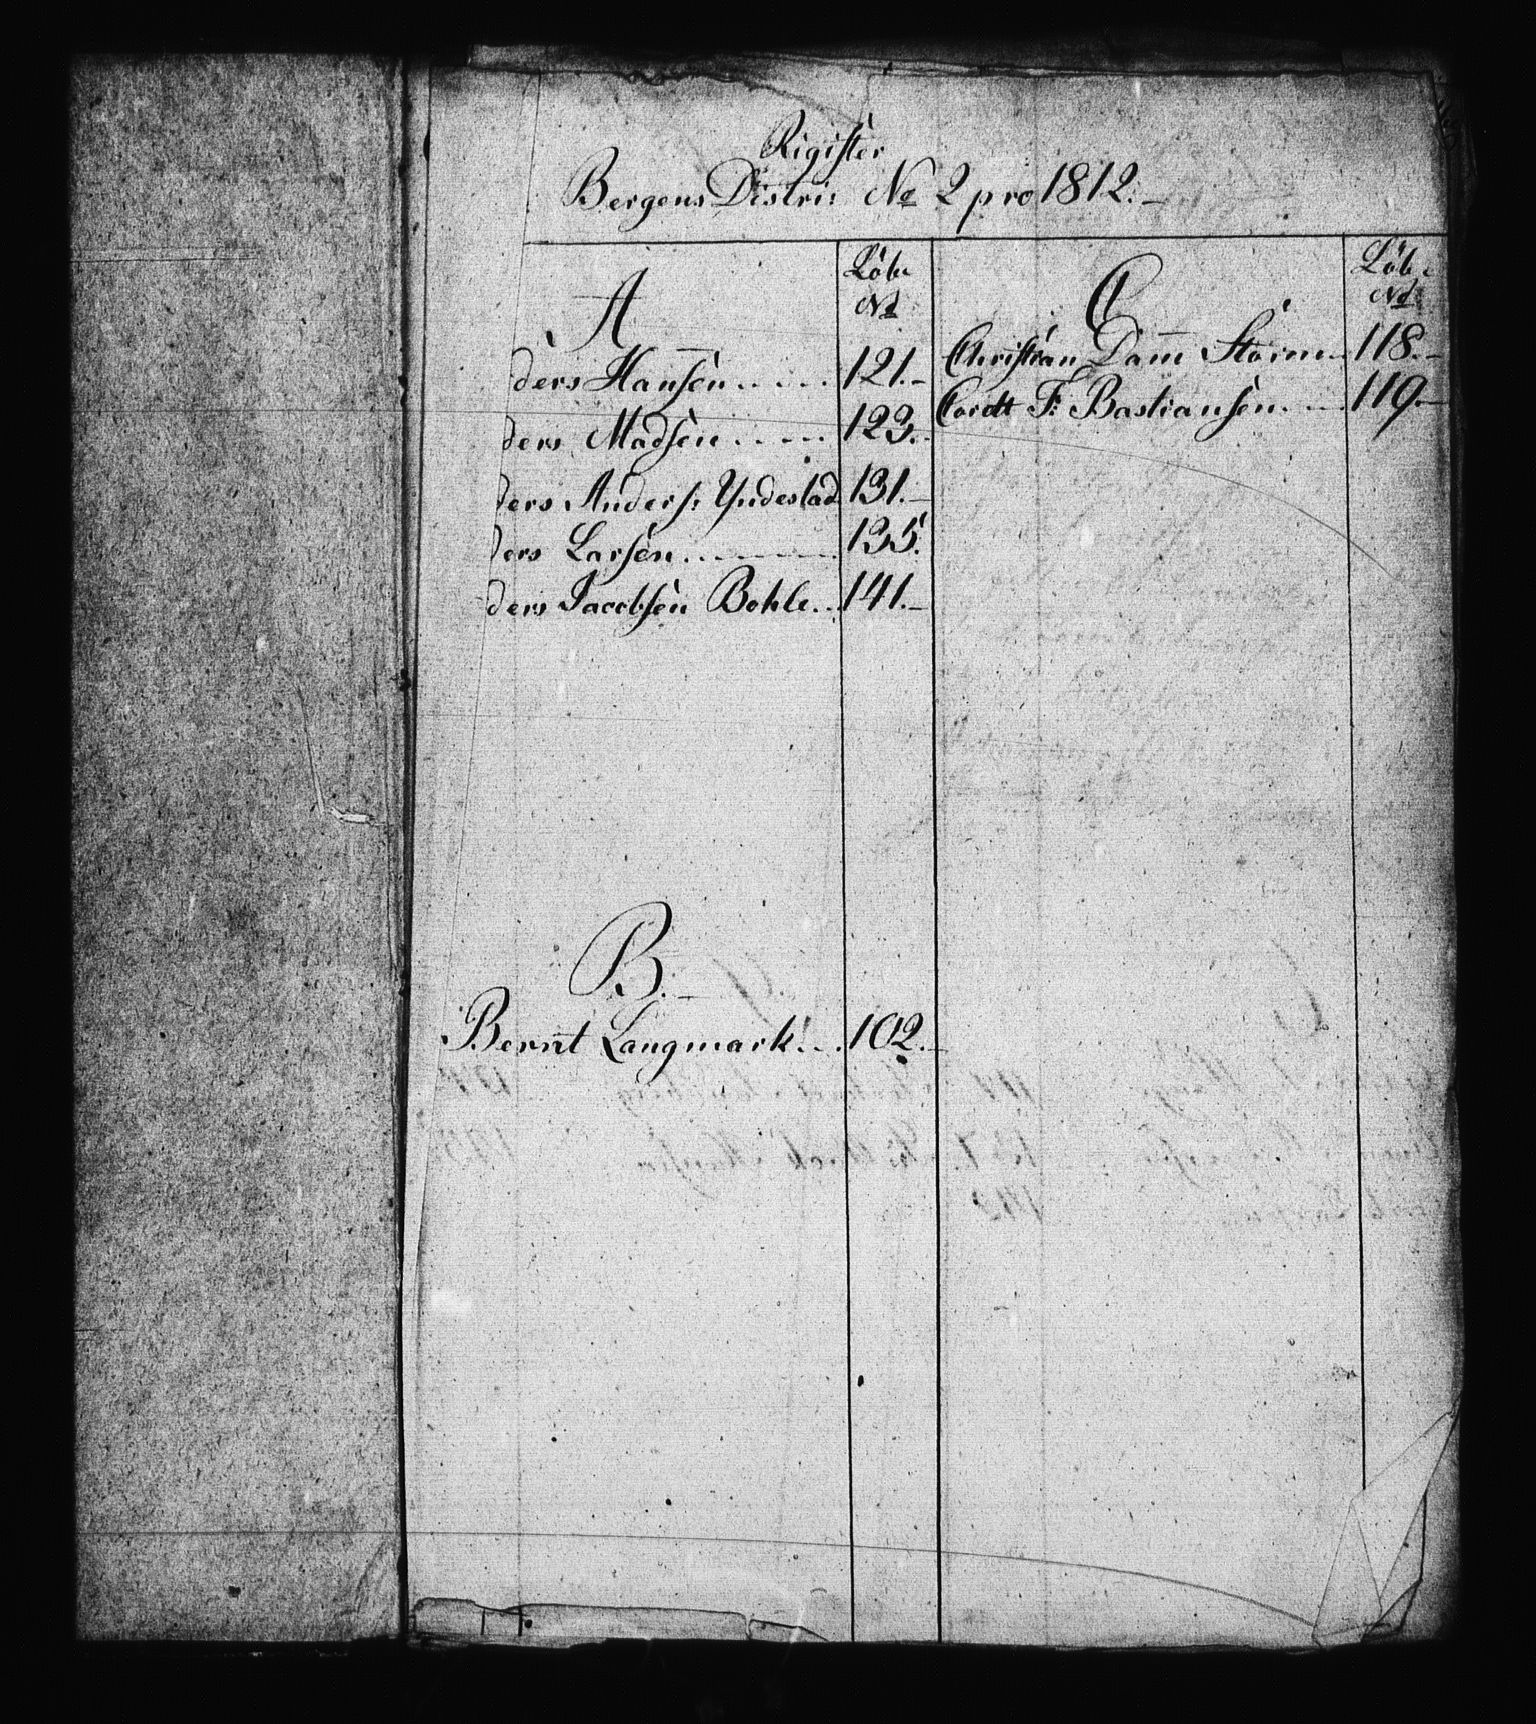 Rigister
Bergens Distri: No 2 pro 1812.
A
Löbe
No
ders Hansen..... 121.
ders Madsen..... 123.
ders Anders: Yndestad 131.
ders Larsen....... 135.
ders Jacobsen Bohle... 141.
B.
Bernt Langmark... 102.
C
Löbe
No
Christian Dam Störm 118.
Cordt F: Bastiansen.... 119.